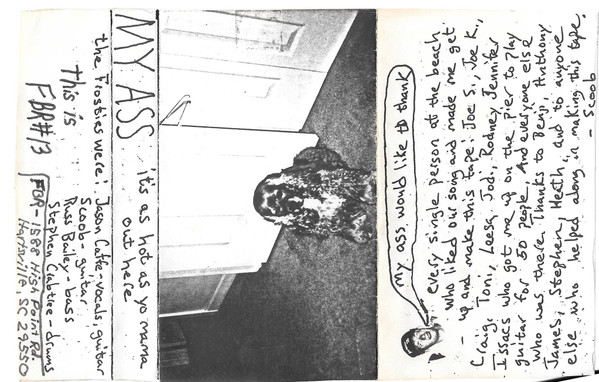 MY ASS it's as hot as yo mama
out here
the frosties were: Jason Catre, vocals, guitar
Scoob - guitar
Russ Bailey - bass
Stephen Crabtree - drums
This is
FBR#13
FBR - 1588 High Point Rd
Hartsville, SC 29550
my ass would like to thank
every single person at the beach
who liked our song and made me get
up and make this tape: Joe S., Joe K.,
Craig, Toni, Leesa, Jodi, Rodney, Jennifer
Issacs who got me up on the pier to play
guitar for 50 people. And everyone else
who was there. Thanks to Benji, Anthony
James, Stephen, Heath, and to anyone
else who helped along in making this tape.
- Scoob